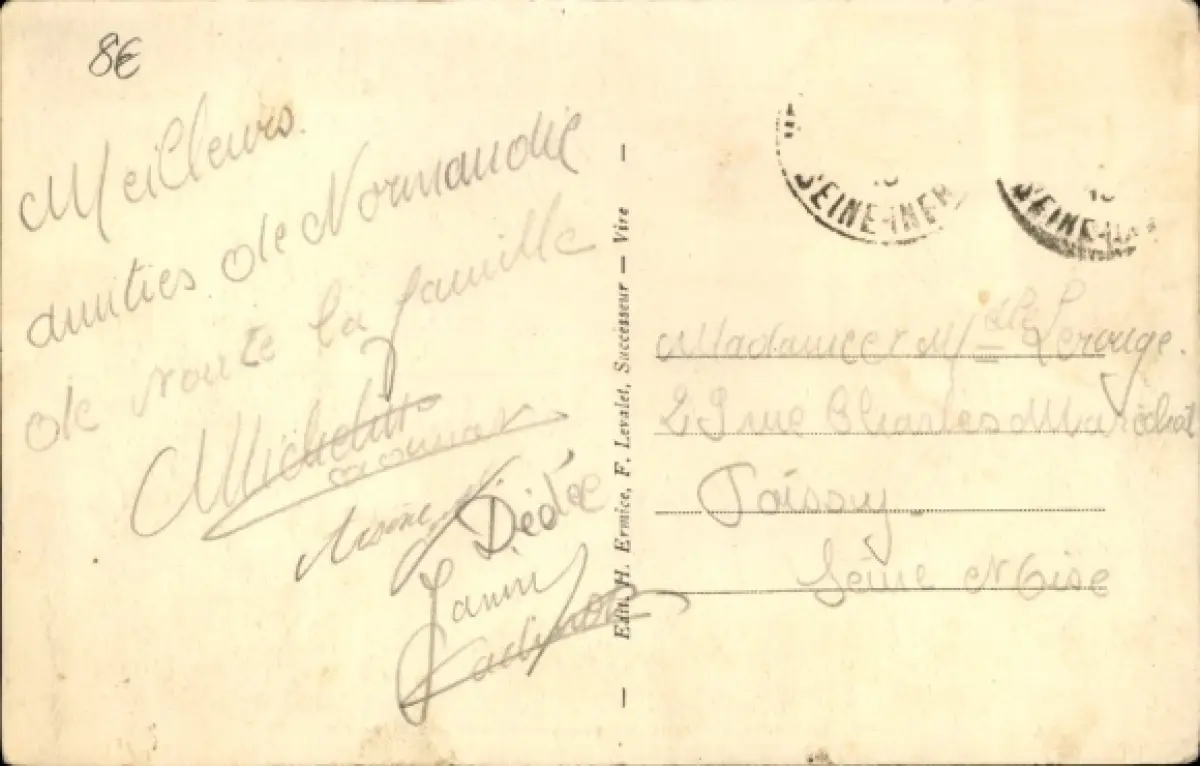 8€
Meilleurs
amitiés de Normandie
de toute la famille
Dédée
Janine
Edit. H. Ermice, F. Levalet, Successeur — Vire
SEINE-INFRE
SEINE-IN
Madame et M/elle Lerouge
29 rue Charles Maréchal
Poissy
Seine et Oise